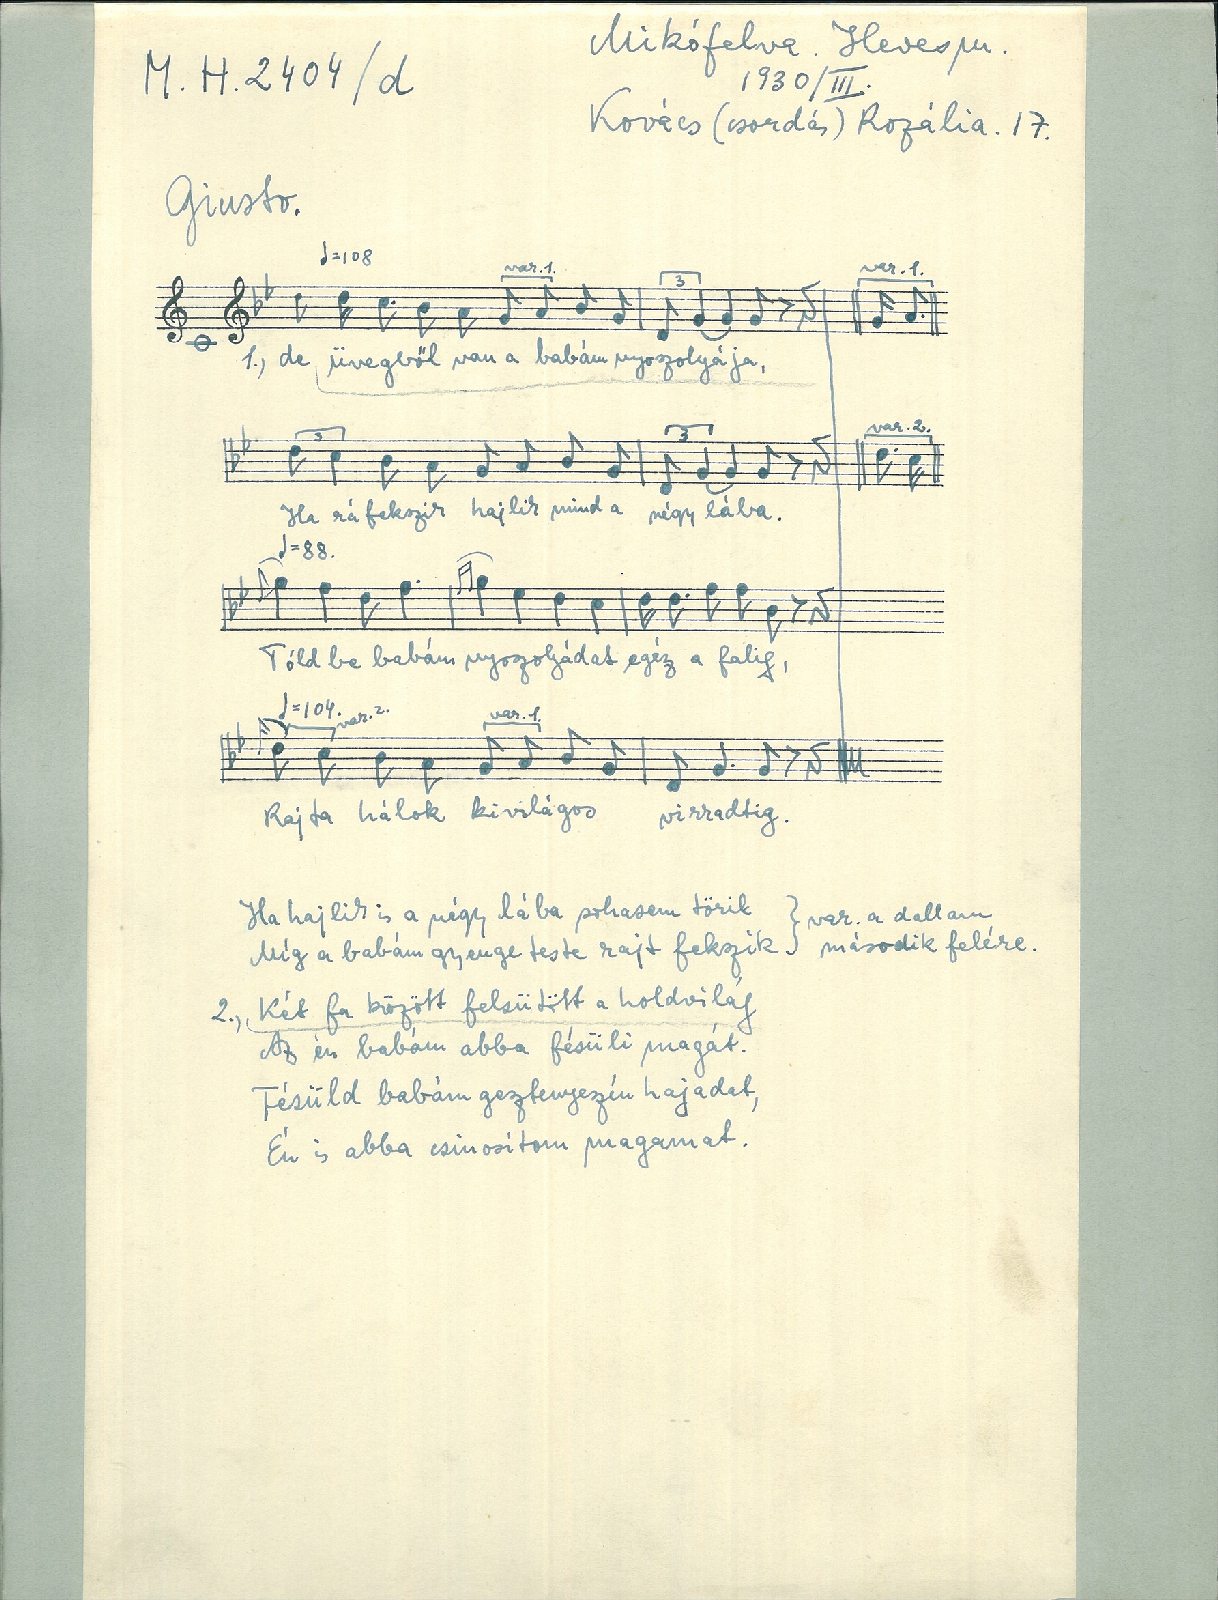 M. H. 2404/d
Mikófelva. Hevesm.
1930/III.
Kovács (csordás) Rozália. 17.
Giusto.
♩=108
var. 1. 3 var. 1.
1., de üvegből van a babám nyoszolyája,
3 3 var. 2.
Ha ráfekszir hajlir mind a négy lába.
♩=88.
Tóld be babám nyoszolyádat egéz a falig,
♩=104. var. 2. var. 1.
Rajta hálok kivilágos virradtig.
Ha hajlir is a négy lába sohasem törik } var. a dallam
Míg a babám gyenge teste rajt fekszik } második felére.
2., Két fa között felsütött a holdvilág
Az én babám abba fésüli magát.
Fésüld babám geztenyezín hajadat,
Én is abba csinosítom magamat.